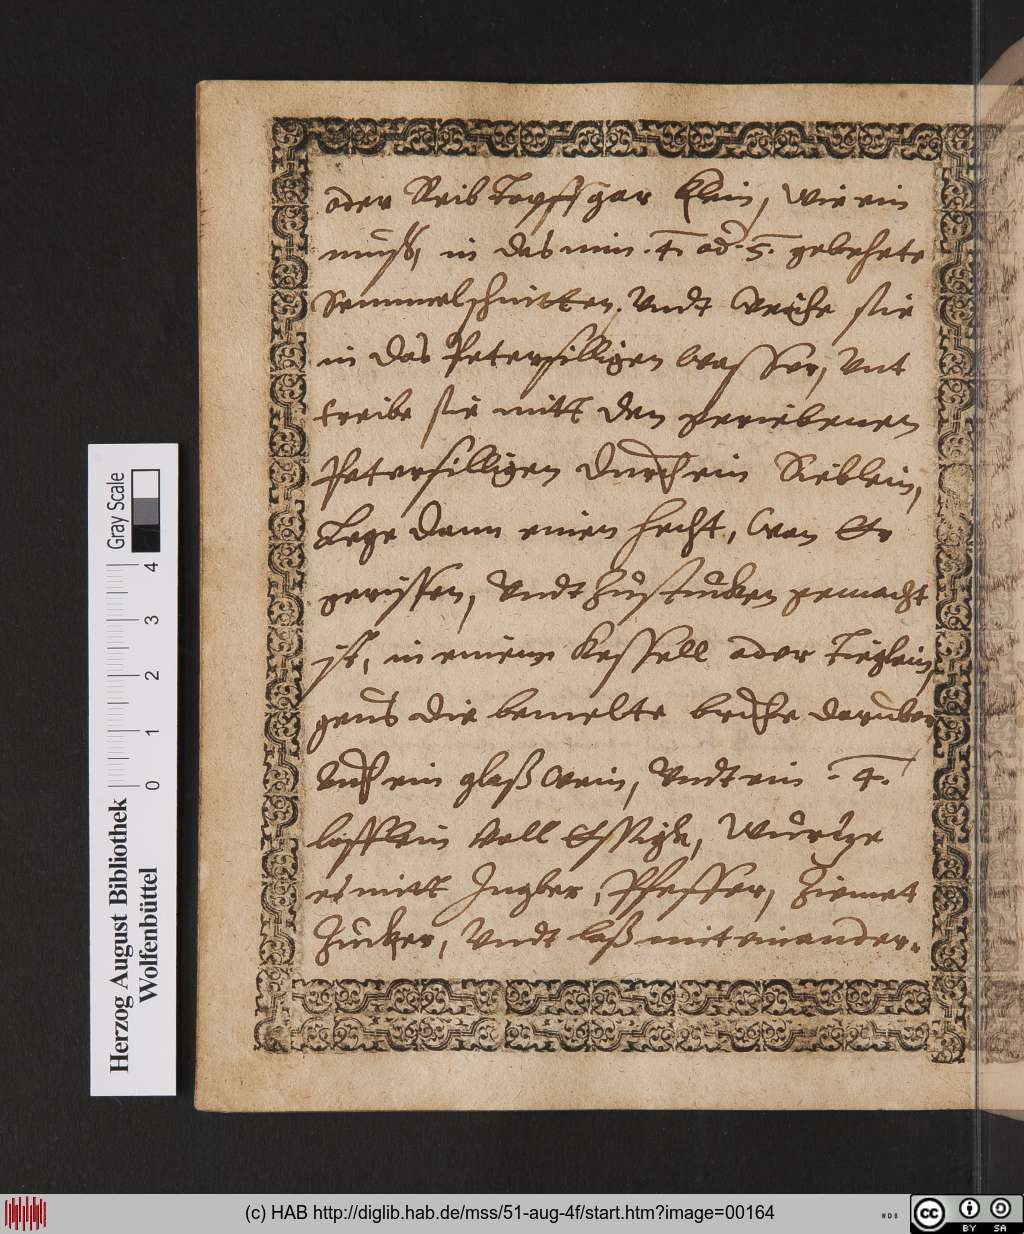 oder Reib Topff gar klein, wie ein
muß, in das nim .4. od .5. gebehete
Semmelschnitten, Undt Weiche sie
in das Petersilligen wasser, Unt
treibe sie mitt den geriebenen
Petersilligen durch ein Sieblein,
Lege dann einen hecht, Wan Er
gerissen, Undt zu stucken gemacht
ist, in einem Kessell oder Tieglein,
geus die bemelte bruhe daruber
auch ein glaß Wein, Undt ein .4.
löfflein Voll Essigk, Wurtze
es mitt Ingber, Pfeffer, Zimet
Zucker, Undt laß mit einander
Herzog August Bibliothek
Wolfenbüttel
0 1 2 3 4
Gray Scale
(c) HAB http://diglib.hab.de/mss/51-aug-4f/start.htm?image=00164
WDB
cc BY SA